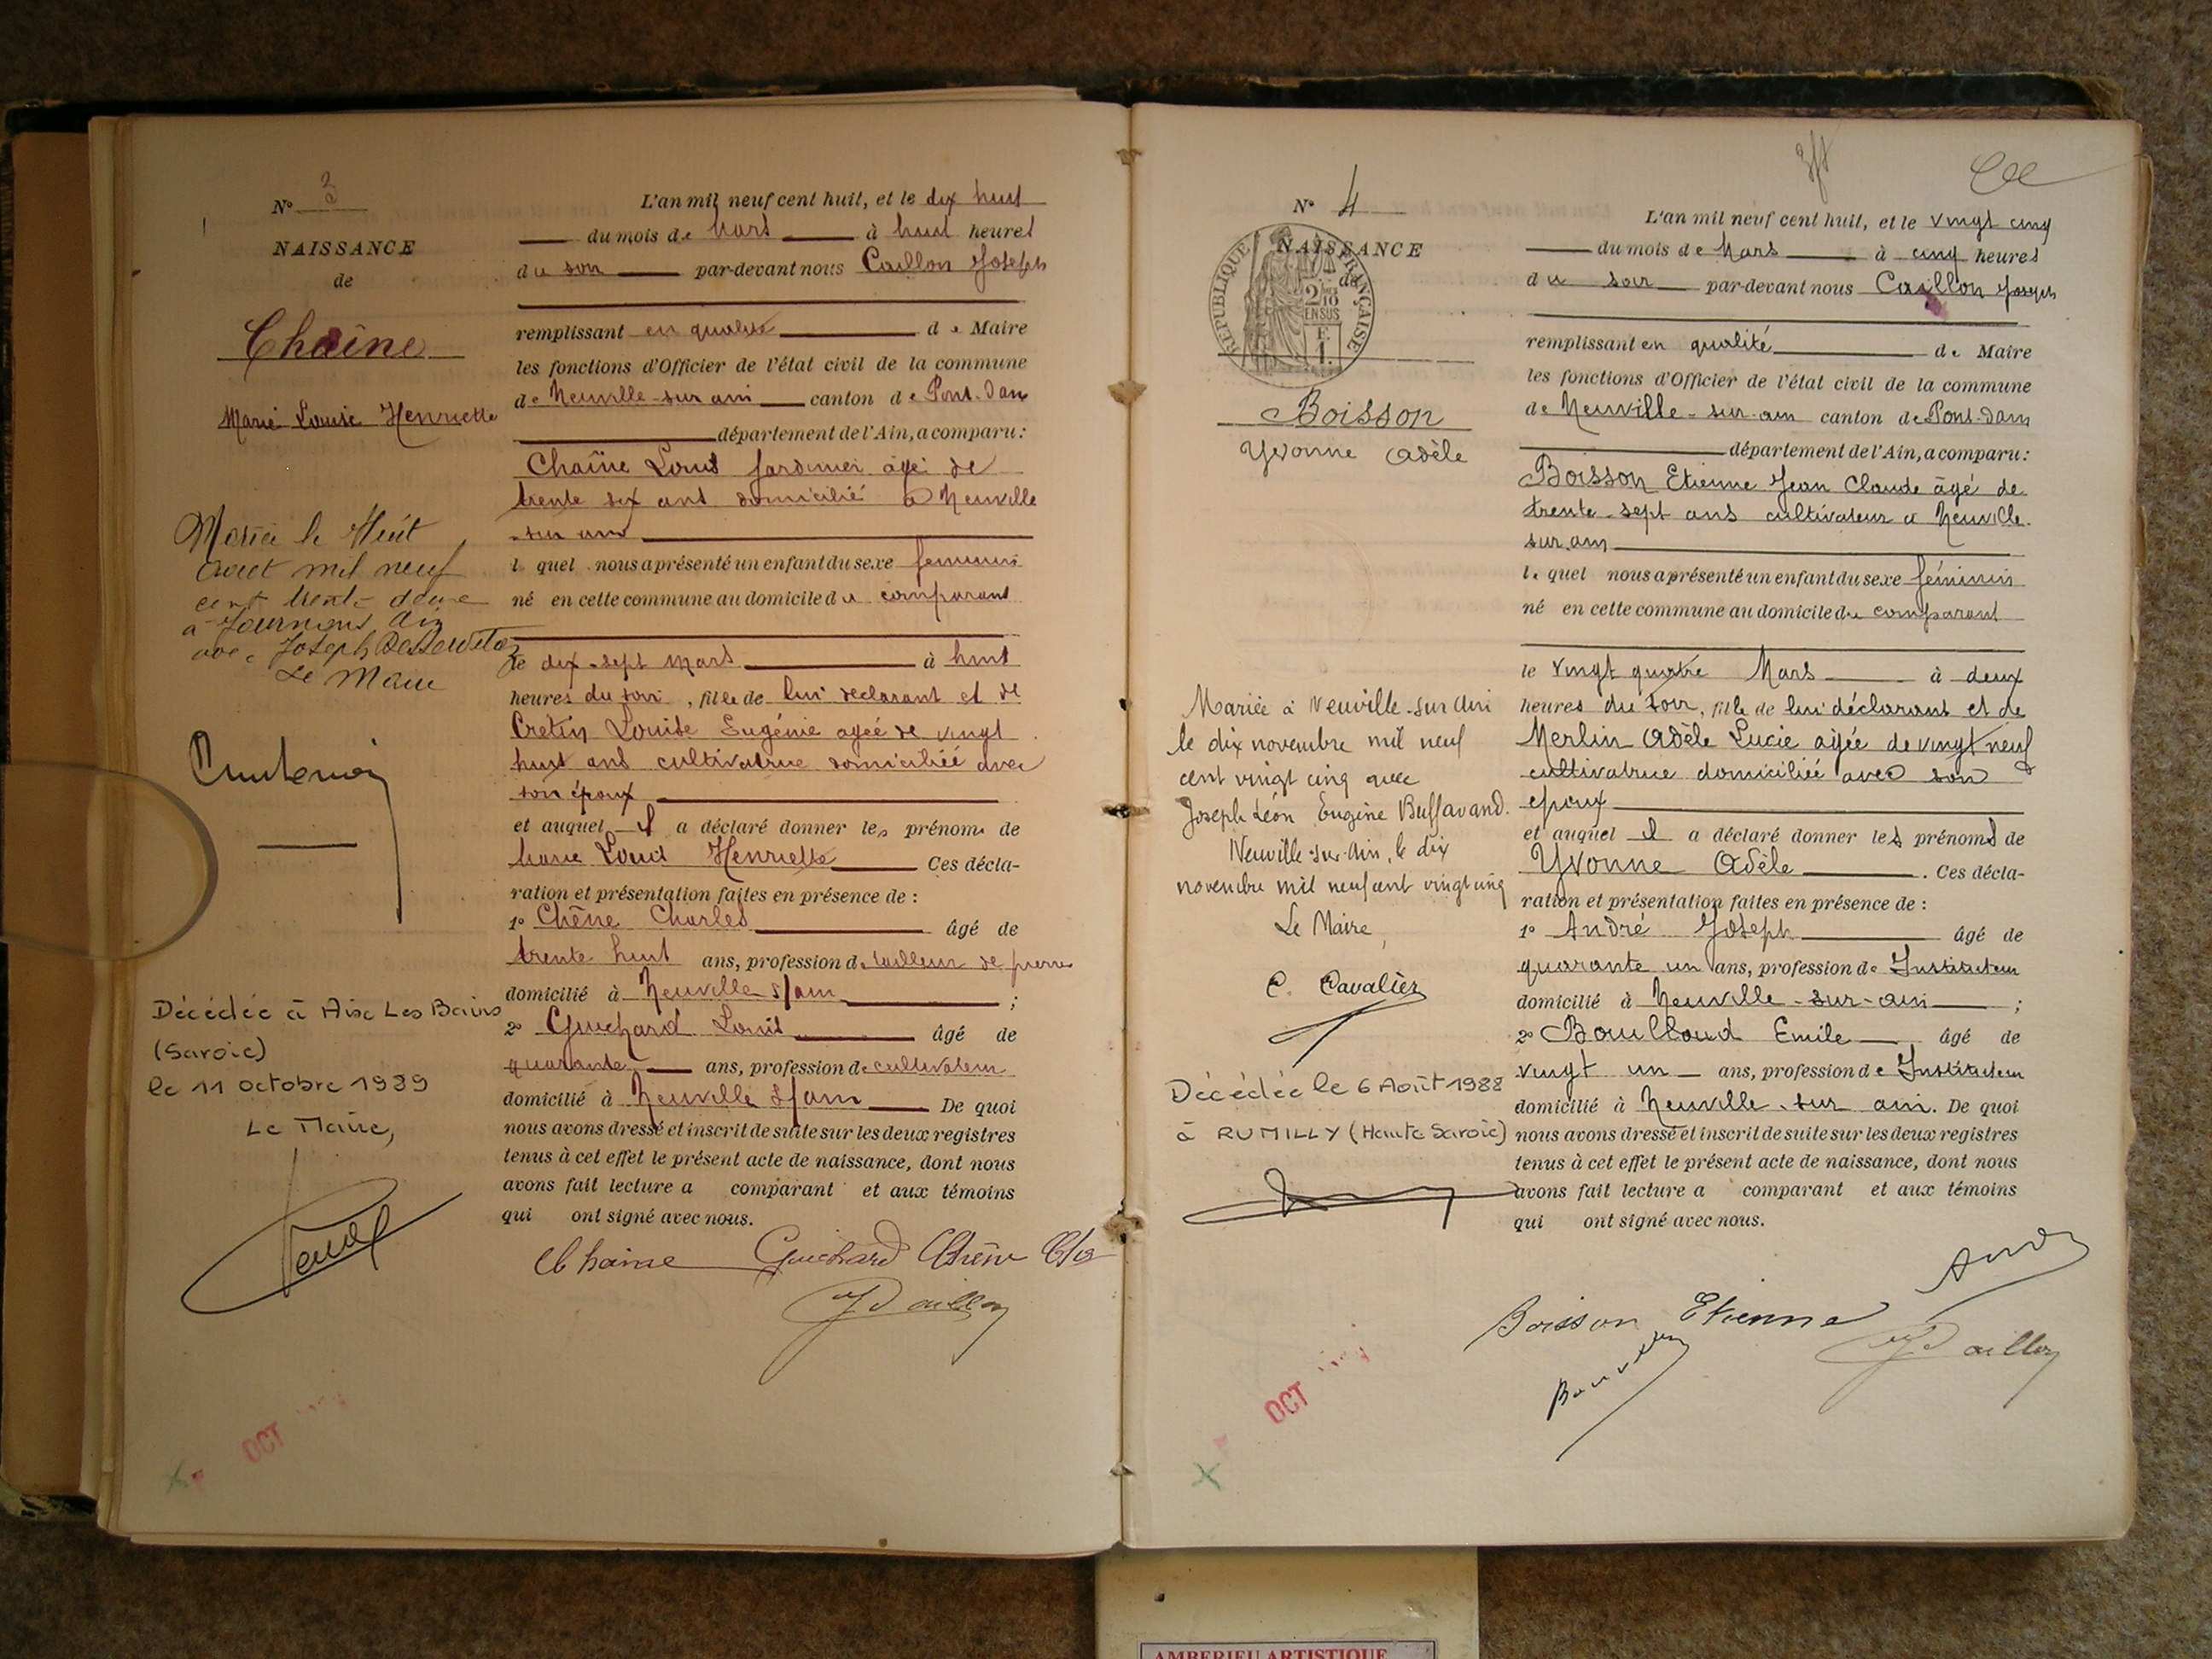 N° 3
NAISSANCE
de
Chaîne
Marie Louise Henriette
Mariée le Huit
août mil neuf
cent trente deux
à Journans Ain
avec Joseph
Le Maire
Décédée à Aix Les Bains
(Savoie)
le 11 octobre 1989
Le Maire,
OCT
L'an mil neuf cent huit, et le dix huit
du mois de Mars à huit heures
du soir par-devant nous Caillon Joseph
remplissant en qualité de Maire
les fonctions d'Officier de l'état civil de la commune
de Neuville-sur ain canton de Pont-Dain
département de l'Ain, a comparu:
Chaîne Louis Jardinier âgé de
trente six ans domicilié à Neuville
-sur ain
lequel nous a présenté un enfant du sexe féminin
né en cette commune au domicile du comparant
le dix-sept Mars à huit
heures du soir, fille de lui déclarant et de
Cretin Louise Eugénie agée de vingt
huit ans cultivatrice domiciliée avec
son époux
et auquel il a déclaré donner les prénoms de
Marie Louis Henriette Ces décla-
ration et présentation faites en présence de :
1° Chêne Charles âgé de
trente huit ans, profession de tailleur de pierre
domicilié à Neuville s/ain ;
2° Guichard Louis âgé de
quarante ans, profession de cultivateur
domicilié à Neuville s/ain De quoi
nous avons dressé et inscrit de suite sur les deux registres
tenus à cet effet le présent acte de naissance, dont nous
avons fait lecture a comparant et aux témoins
qui ont signé avec nous.
Chaine Guichard Chêne Ch
J Caillon
N° 4
NAISSANCE
de
RÉPUBLIQUE FRANÇAISE
2/10 EN SUS
Boisson
Yvonne Adèle
Mariée à Neuville-sur-Ain
le dix novembre mil neuf
cent vingt cinq avec
Joseph Léon Eugène Buffavand.
Neuville-sur-Ain, le dix
novembre mil neuf cent vingt cinq
Le Maire,
C. Cavalier
Décédée le 6 Août 1988
à RUMILLY (Haute Savoie)
OCT
L'an mil neuf cent huit, et le vingt cinq
du mois de Mars à cinq heures
du soir par-devant nous Caillon Joseph
remplissant en qualité de Maire
les fonctions d'Officier de l'état civil de la commune
de Neuville-sur-ain canton de Pont-Dain
département de l'Ain, a comparu:
Boisson Etienne Jean Claude âgé de
trente-sept ans cultivateur à Neuville-
sur.ain
lequel nous a présenté un enfant du sexe féminin
né en cette commune au domicile du comparant
le vingt quatre Mars à deux
heures du soir, fille de lui déclarant et de
Merlin Adèle Lucie agée de vingt neuf
cultivatrice domiciliée avec son
époux
et auquel il a déclaré donner les prénoms de
Yvonne Adèle. Ces décla-
ration et présentation faites en présence de :
1° André Joseph âgé de
quarante un ans, profession de Instituteur
domicilié à Neuville-sur-ain ;
2° Boulloud Emile âgé de
vingt un ans, profession de Instituteur
domicilié à Neuville-sur ain. De quoi
nous avons dressé et inscrit de suite sur les deux registres
tenus à cet effet le présent acte de naissance, dont nous
avons fait lecture a comparant et aux témoins
qui ont signé avec nous.
André
Boisson Etienne
J Caillon
AMBERIEU ARTISTIQUE